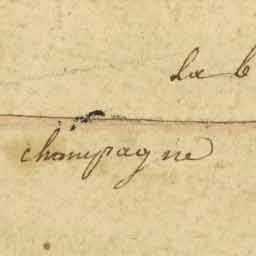 La b
champagne